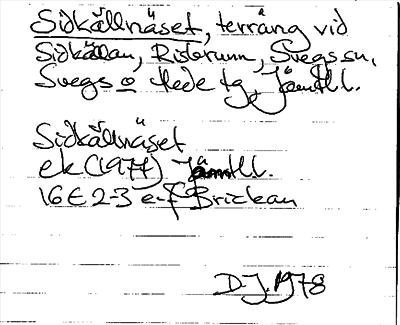 Sidkällnäset, terräng vid
Sidkällan, Ristbrunn, Svegs sn,
Svegs o Hede tg, Jämtl l.
Sidkällnäset
ek (1977) Jämtl l.
16E 2-3 e-f Brickan
D.J. 1978